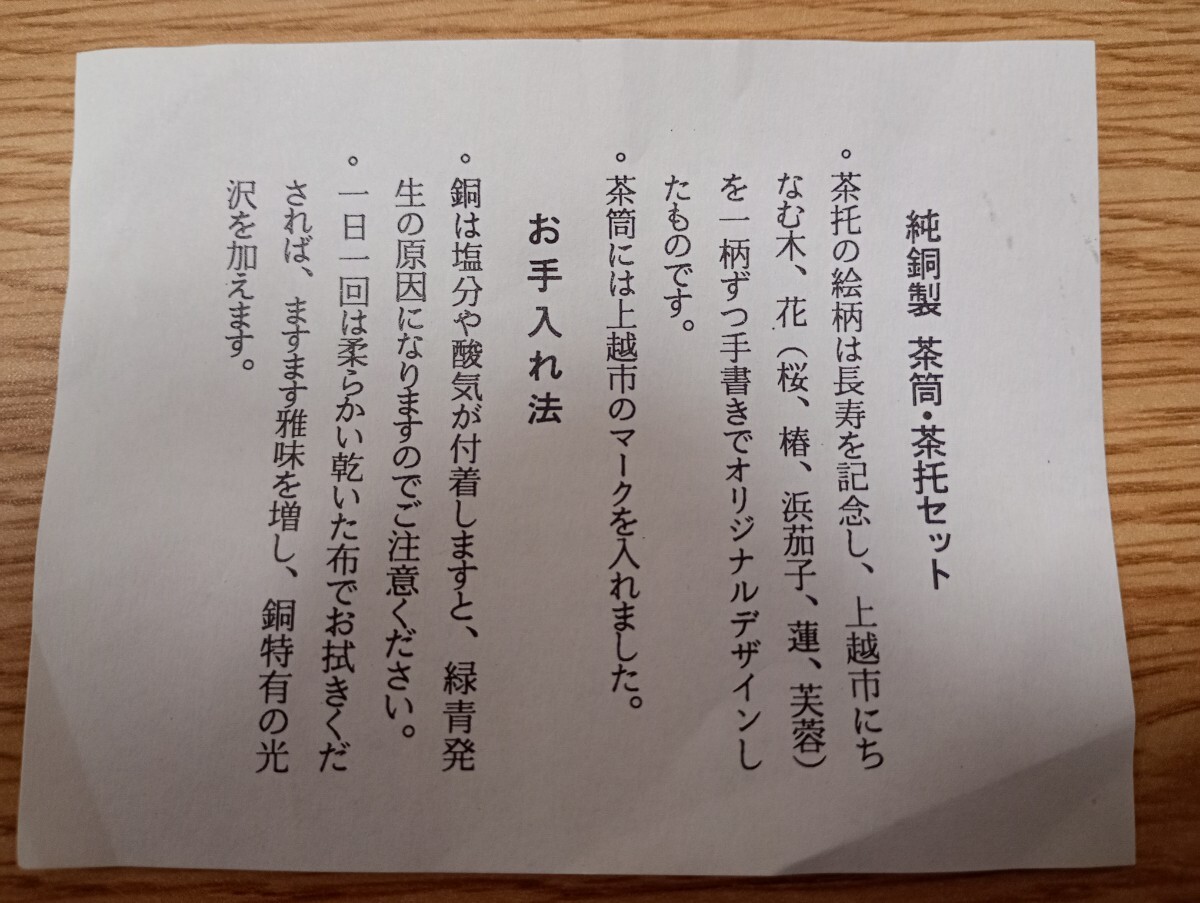 純銅製 茶筒・茶托セット
。茶托の絵柄は長寿を記念し、上越市にち
なむ木、花(桜、椿、浜茄子、蓮、芙蓉)
を一柄ずつ手書きでオリジナルデザインし
たものです。
。茶筒には上越市のマークを入れました。
お手入れ法
。銅は塩分や酸気が付着しますと、緑青発
生の原因になりますのでご注意ください。
。一日一回は柔らかい乾いた布でお拭きくだ
されば、ますます雅味を増し、銅特有の光
沢を加えます。